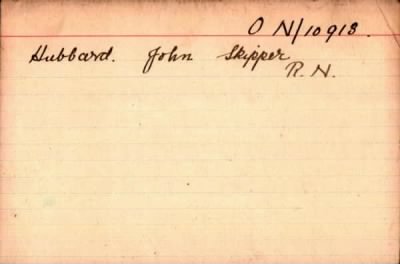 O N/10918.
Hubbard. John Skipper
R.N.